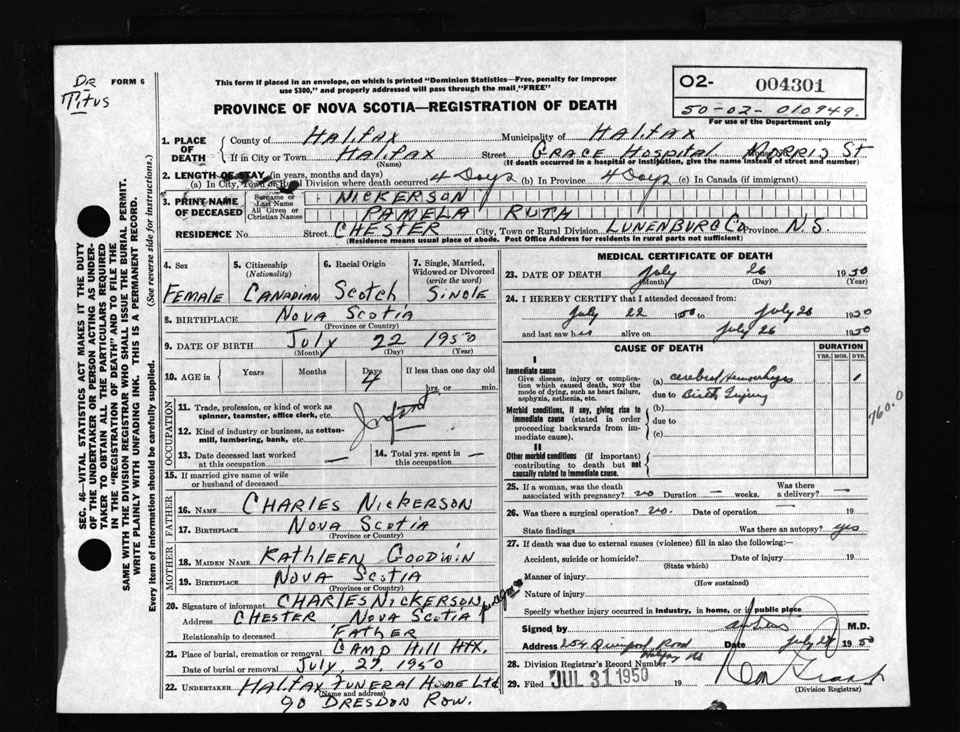 DR
TITUS
FORM 6
This form if placed in an envelope, on which is printed "Dominion Statistics—Free, penalty for improper
use $300," and properly addressed will pass through the mail "FREE"
PROVINCE OF NOVA SCOTIA—REGISTRATION OF DEATH
02- 004301
50-02-010949.
For use of the Department only
SEC. 46—VITAL STATISTICS ACT MAKES IT THE DUTY
OF THE UNDERTAKER OR PERSON ACTING AS UNDER-
TAKER TO OBTAIN ALL THE PARTICULARS REQUIRED
IN THE "REGISTRATION OF DEATH" AND TO FILE THE
SAME WITH THE DIVISION REGISTRAR WHO SHALL ISSUE THE BURIAL PERMIT.
WRITE PLAINLY WITH UNFADING INK. THIS IS A PERMANENT RECORD.
Every item of Information should be carefully supplied. (See reverse side for instructions.)
1. PLACE OF DEATH
County of HALIFAX Municipality of HALIFAX
If in City or Town HALIFAX Street GRACE HOSPITAL MORRIS ST
(Name) (If death occurred in a hospital or institution, give the name instead of street and number)
2. LENGTH OF STAY (in years, months and days)
(a) In City, Town or Rural Division where death occurred 4 Days (b) In Province 4 Days (c) In Canada (if immigrant)
3. PRINT NAME OF DECEASED
Surname or Last Name NICKERSON
All Given or Christian Names PAMELA RUTH
RESIDENCE No. Street CHESTER City, Town or Rural Division LUNENBURG Co Province N.S.
(Residence means usual place of abode. Post Office Address for residents in rural parts not sufficient)
4. Sex FEMALE
5. Citizenship (Nationality) CANADIAN
6. Racial Origin SCOTCH
7. Single, Married, Widowed or Divorced (write the word) SINGLE
8. BIRTHPLACE NOVA SCOTIA
(Province or Country)
9. DATE OF BIRTH JULY 22 1950
(Month) (Day) (Year)
10. AGE in Years Months Days 4 If less than one day old hrs. or min.
OCCUPATION
11. Trade, profession, or kind of work as spinner, teamster, office clerk, etc.
Infant
12. Kind of industry or business, as cotton-mill, lumbering, bank, etc.
13. Date deceased last worked at this occupation —
14. Total yrs. spent in this occupation —
15. If married give name of wife or husband of deceased
FATHER
16. NAME CHARLES NICKERSON
17. BIRTHPLACE NOVA SCOTIA
(Province or Country)
MOTHER
18. MAIDEN NAME KATHLEEN GOODWIN
19. BIRTHPLACE NOVA SCOTIA
(Province or Country)
20. Signature of informant CHARLES NICKERSON
Address CHESTER NOVA SCOTIA
Relationship to deceased FATHER
21. Place of burial, cremation or removal CAMP HILL HFX.
Date of burial or removal JULY. 27. 1950
22. UNDERTAKER HALIFAX FUNERAL HOME LTD
(Name and address)
90 DRESDON ROW.
MEDICAL CERTIFICATE OF DEATH
23. DATE OF DEATH July 26 1950
(Month) (Day) (Year)
24. I HEREBY CERTIFY that I attended deceased from:
July 22 1950 to July 26 1950
and last saw h alive on July 26 1950
CAUSE OF DEATH
DURATION
YRS. MOS. DYS.
I
Immediate cause
Give disease, injury or complication which caused death, not the mode of dying, such as heart failure, asphyxia, asthenia, etc.
(a) cerebral Hemorrhages 1
due to Birth Injury
Morbid conditions, if any, giving rise to immediate cause (stated in order proceeding backwards from immediate cause).
(b)
due to
(c)
II
Other morbid conditions (if important) contributing to death but not causally related to immediate cause.
760.0
25. If a woman, was the death associated with pregnancy? no Duration — weeks. Was there a delivery? —
26. Was there a surgical operation? no. Date of operation 19
State findings Was there an autopsy? yes
27. If death was due to external causes (violence) fill in also the following:—
Accident, suicide or homicide? Date of injury 19
(State which)
Manner of injury
(How sustained)
Nature of injury
Specify whether injury occurred in industry, in home, or in public place
Signed by M.D.
Address 254 Quinpool Road Date July 28 1950
Halifax NS
28. Division Registrar's Record Number
29. Filed JUL 31 1950 19
(Division Registrar)